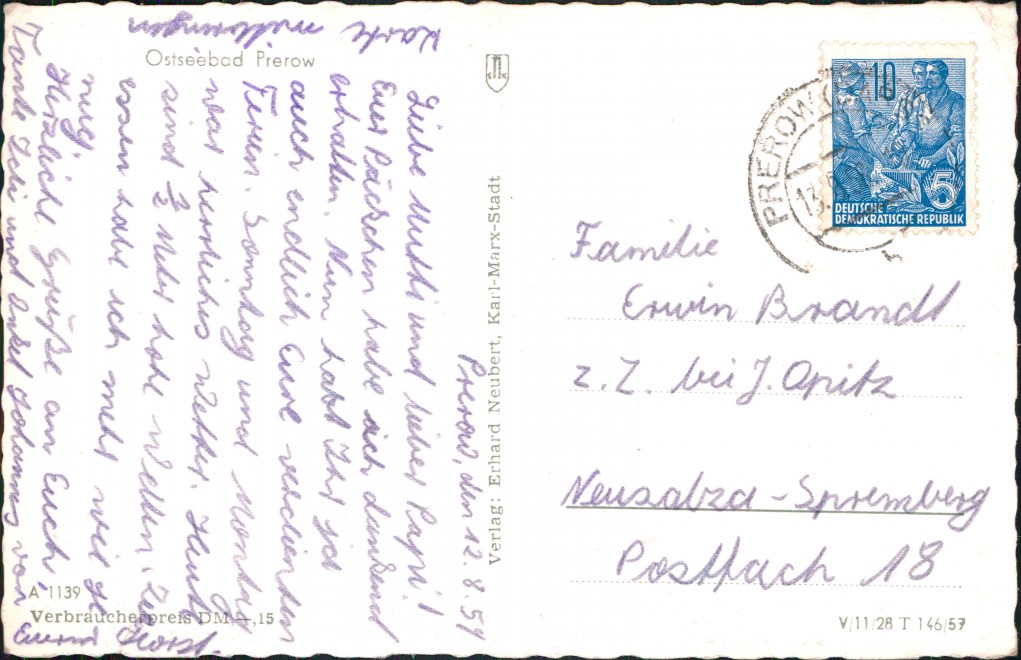 Ostseebad Prerow
Prerow, den 12. 8. 59
Liebe Mutti und lieber Papi!
Euer Päckchen habe ich dankend
erhalten. Nun habt Ihr ja
auch endlich Eure verdienten
Ferien. Sonntag und Montag
war herrliches Wetter. Heute
sind Meter hohe Wellen. Zu
essen habe ich mehr wie ge
nug.
Herzliche Grüße an Euch,
Tante und Onkel Johannes von
Eurem Horst.
Karte mitbringen
A 1139
Verbraucherpreis DM —,15
Verlag: Erhard Neubert, Karl-Marx-Stadt
PREROW
13.
10
5
DEUTSCHE
DEMOKRATISCHE REPUBLIK
Familie
Erwin Brandt
z. Z. bei J. Opitz
Neusalza-Spremberg
Postfach 18
V/11/28 T 146/57